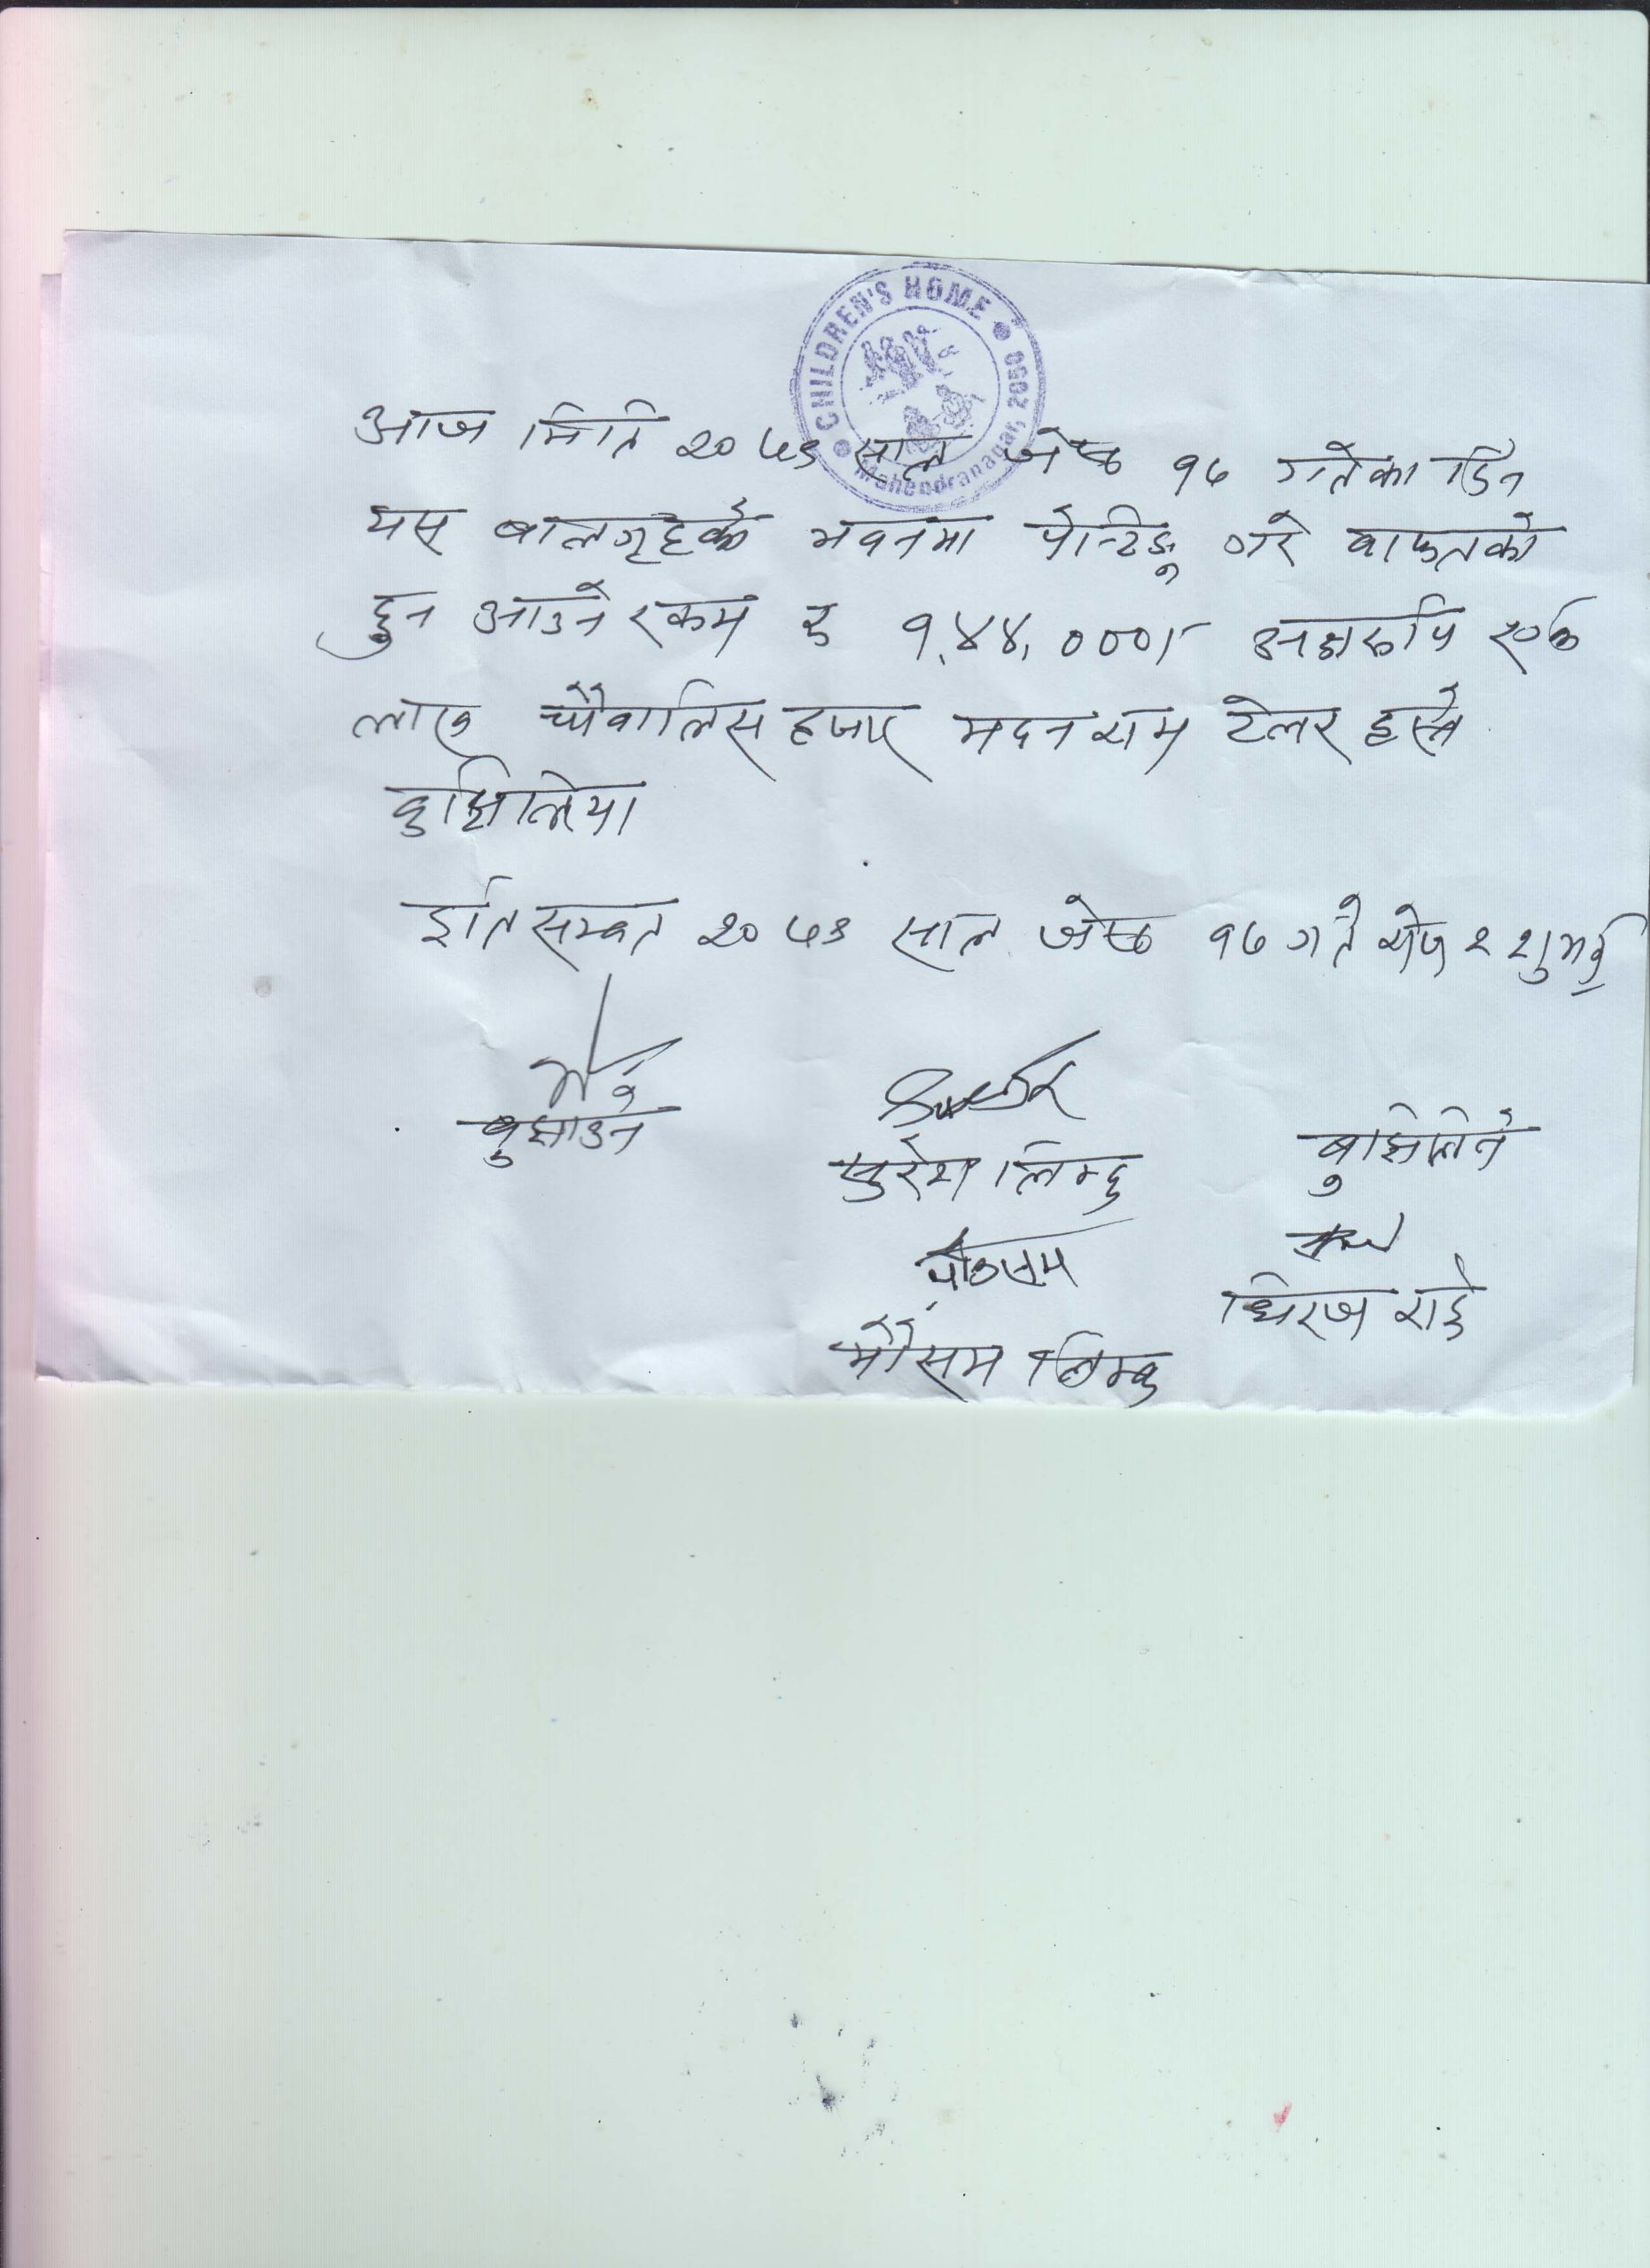 CHILDREN'S HOME
Mahendranagar, 2050
आज मिति २०७३ साल जेष्ठ १७ गतेका दिन
यस बालगृहको भवनमा पेन्टिङ्ग गरे वाफतको
हुन आउने रकम रु १,४४,०००/- अक्षरुपि एक
लाख चौवालिस हजार मदन राम टेलर हस्ते
बुझिलिया
इति सम्वत २०७३ साल जेष्ठ १७ गते रोज २ शुभम्
बुझाउने
सुरेश लिम्बु
बुझिलिने
मौसम लिम्बु
धिरज राई